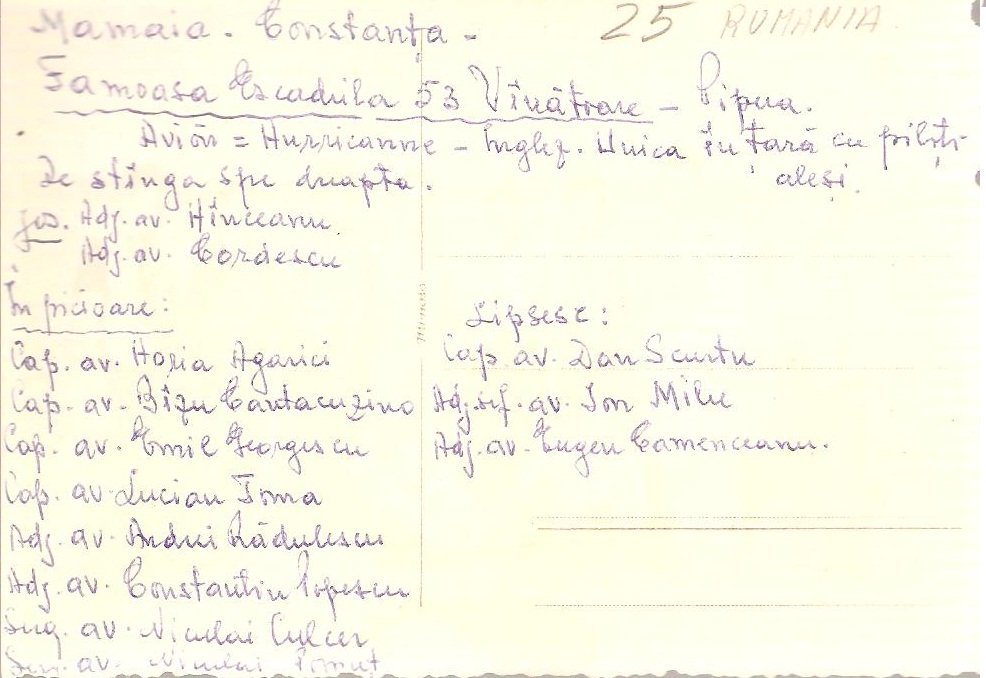 25 RUMANIA
Mamaia - Constanța -
Famoasa Escadrila 53 Vînătoare - Pipera.
Avion = Hurricanne - Englez. Unica în țară cu piloți
aleși.
De stînga spre dreapta.
jos. Adj. av. Hînceanu.
Adj. av. Cordescu
În picioare:
Cap. av. Horia Agarici
Cap. av. Bîzu Cantacuzino
Cap. av. Emil Georgescu
Cap. av. Lucian Toma
Adj. av. Andrei Rădulescu
Adj. av. Constantin Popescu
Sug. av. Niculai Culcer
av. Niculai
Lipsesc:
Cap. av. Dan Scurtu
Adj. șef. av. Ion Milu
Adj. av. Eugen Camenceanu.